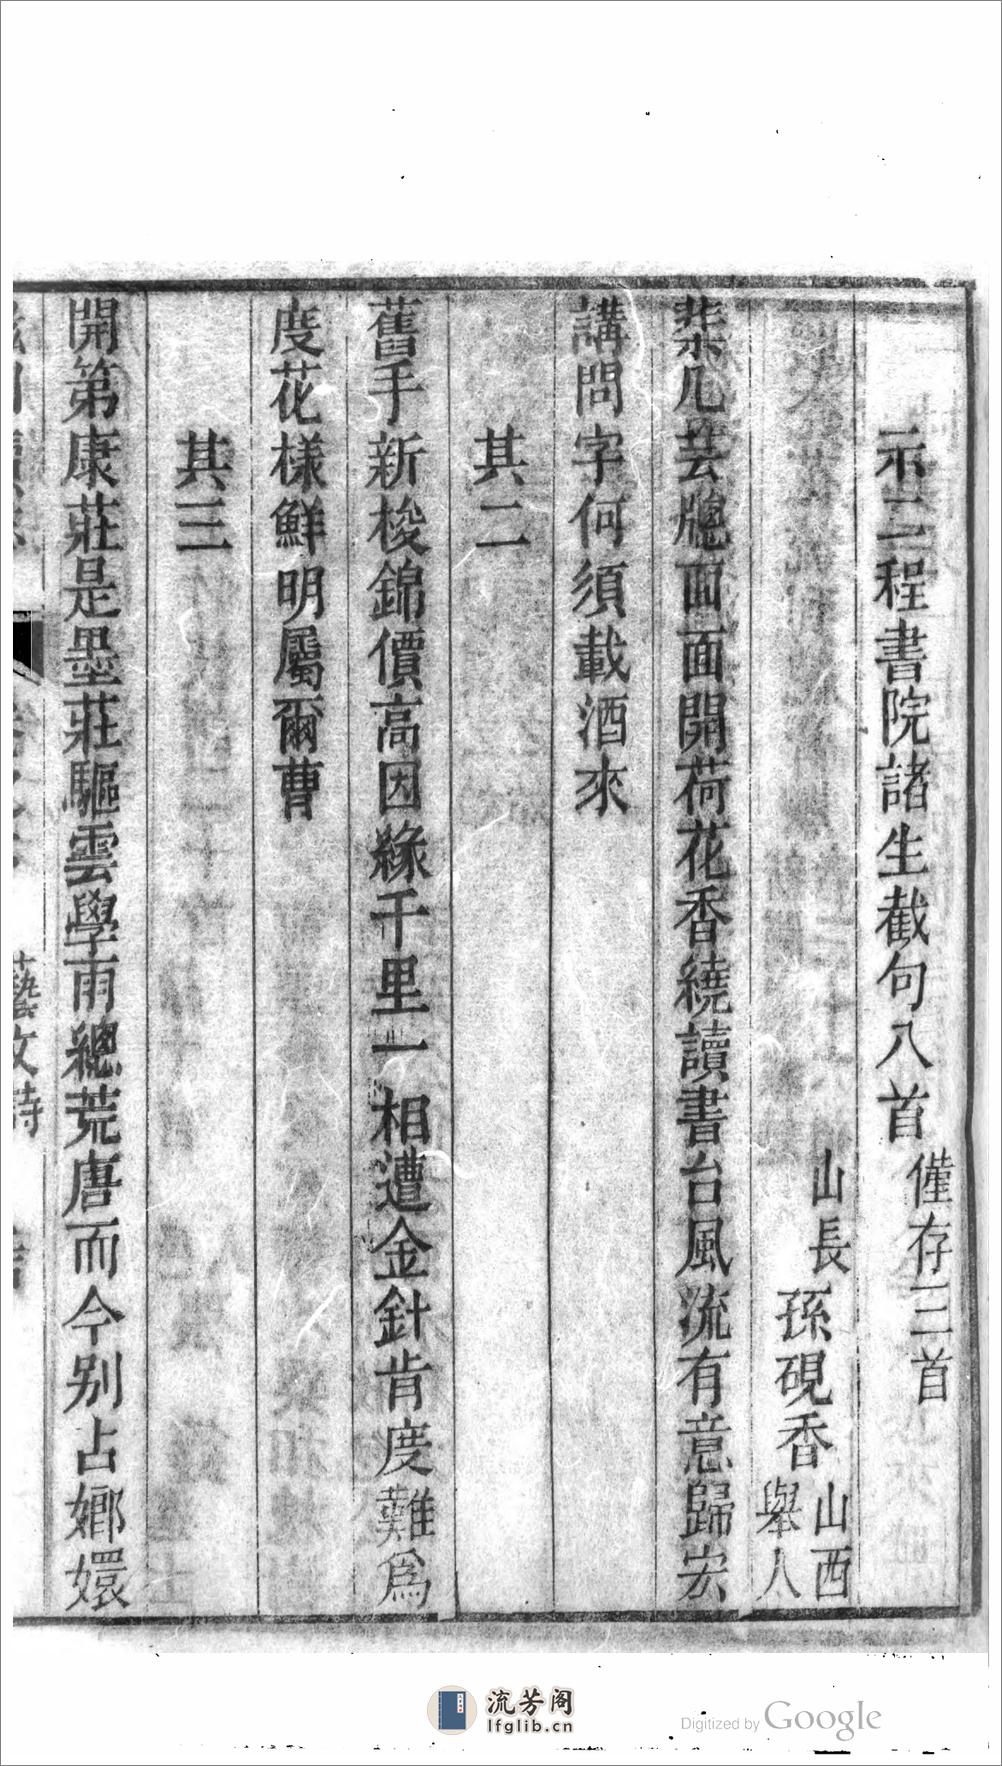 示二程書院諸生截句八首 僅存三首
山長孫硯香 山西舉人
棐几芸牕面面開荷花香繞讀書台風流有意歸宏
講問字何須載酒來
其二
舊手新梭錦價高因緣千里一相遭金針肯度難為
度花樣鮮明屬爾曹
其三
開第康莊是墨莊驅雲學雨總荒唐而今別占嫏嬛
藝文詩
流芳阁
lfglib.cn
Digitized by Google